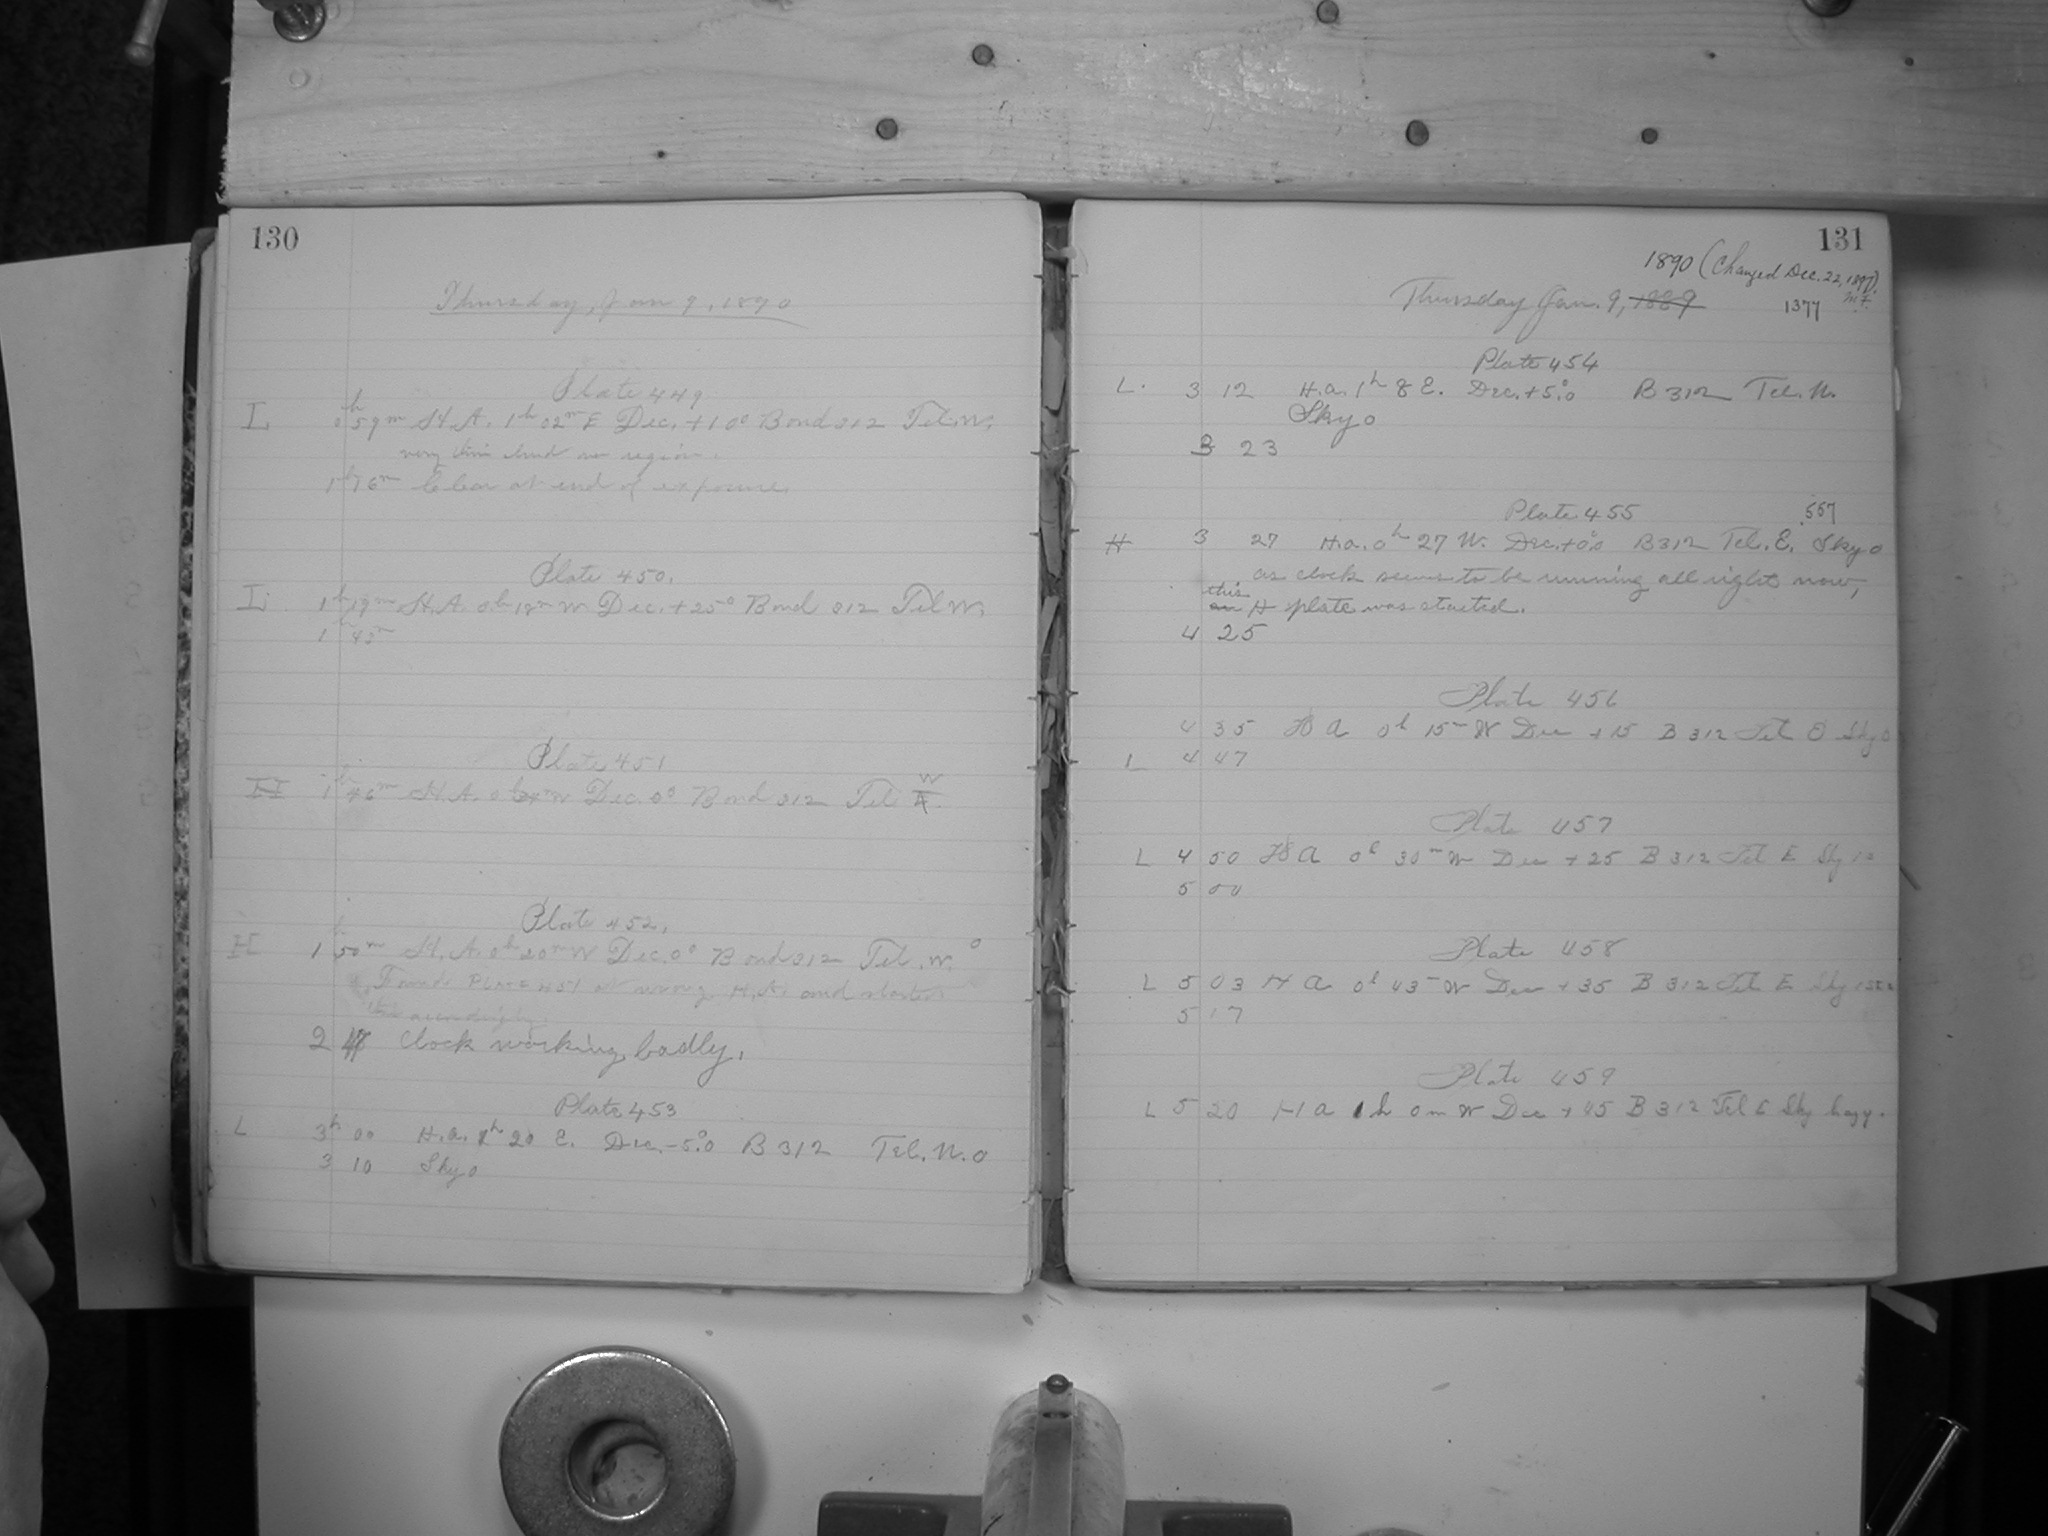 130
Thursday, Jan 9, 1890
Plate 449
L 0h 59m H.A. 1h 02m E Dec. +10° Bond 312 Tel. W.
very thin cloud over region.
1h 16m Clear at end of exposure.
Plate 450.
L 1h 19m H.A. 0h 18m W Dec. +25° Bond 312 Tel W.
1 43m
Plate 451
H 1h 46m H.A. 0h W Dec. 0° Bond 312 Tel W
Plate 452.
H 1h 50m H.A. 0h 20m W Dec. 0° Bond 312 Tel. W. 0
Found Plate 451 at wrong H.A. and started
this accordingly.
2 48 Clock working badly.
Plate 453
L 3h 00 H.a. 1h 20 E. Dec. -5°.0 B 312 Tel. W. 0
3 10 Sky 0
131
1890 (Changed Dec. 22, 1897). M.F.
Thursday Jan. 9, 1889 1377
Plate 454
L. 3 12 H.a. 1h 8 E. Dec. +5°.0 B 312 Tel. W.
Sky 0
3 23
Plate 455 557
H 3 27 H.a. 0h 27 W. Dec. +0°.0 B 312 Tel. E. Sky 0
as clock seems to be running all right now,
this
an H plate was started.
4 25
Plate 456
4 35 H A 0h 15m W Dec +15 B 312 Tel E Sky 0
L 4 47
Plate 457
L 4 50 H A 0h 30m W Dec +25 B 312 Tel E Sky
5 00
Plate 458
L 5 03 H A 0h 43m W Dec +35 B 312 Tel E Sky
5 17
Plate 459
L 5 20 H A 1h 0m W Dec +45 B 312 Tel E Sky hazy.